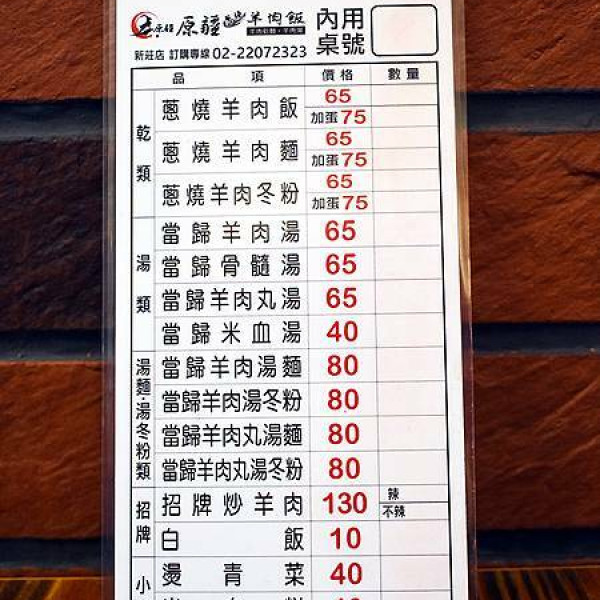 原疆 原疆 羊肉飯 內用
桌號
新莊店 訂購專線 02-22072323
品項 價格 數量
乾類
蔥燒羊肉飯 65
加蛋75
蔥燒羊肉麵 65
加蛋75
蔥燒羊肉冬粉 65
加蛋75
湯類
當歸羊肉湯 65
當歸骨髓湯 65
當歸羊肉丸湯 65
當歸米血湯 40
湯麵·湯冬粉類
當歸羊肉湯麵 80
當歸羊肉湯冬粉 80
當歸羊肉丸湯麵 80
當歸羊肉丸湯冬粉 80
招牌
招牌炒羊肉 130 辣
不辣
白飯 10
小
燙青菜 40